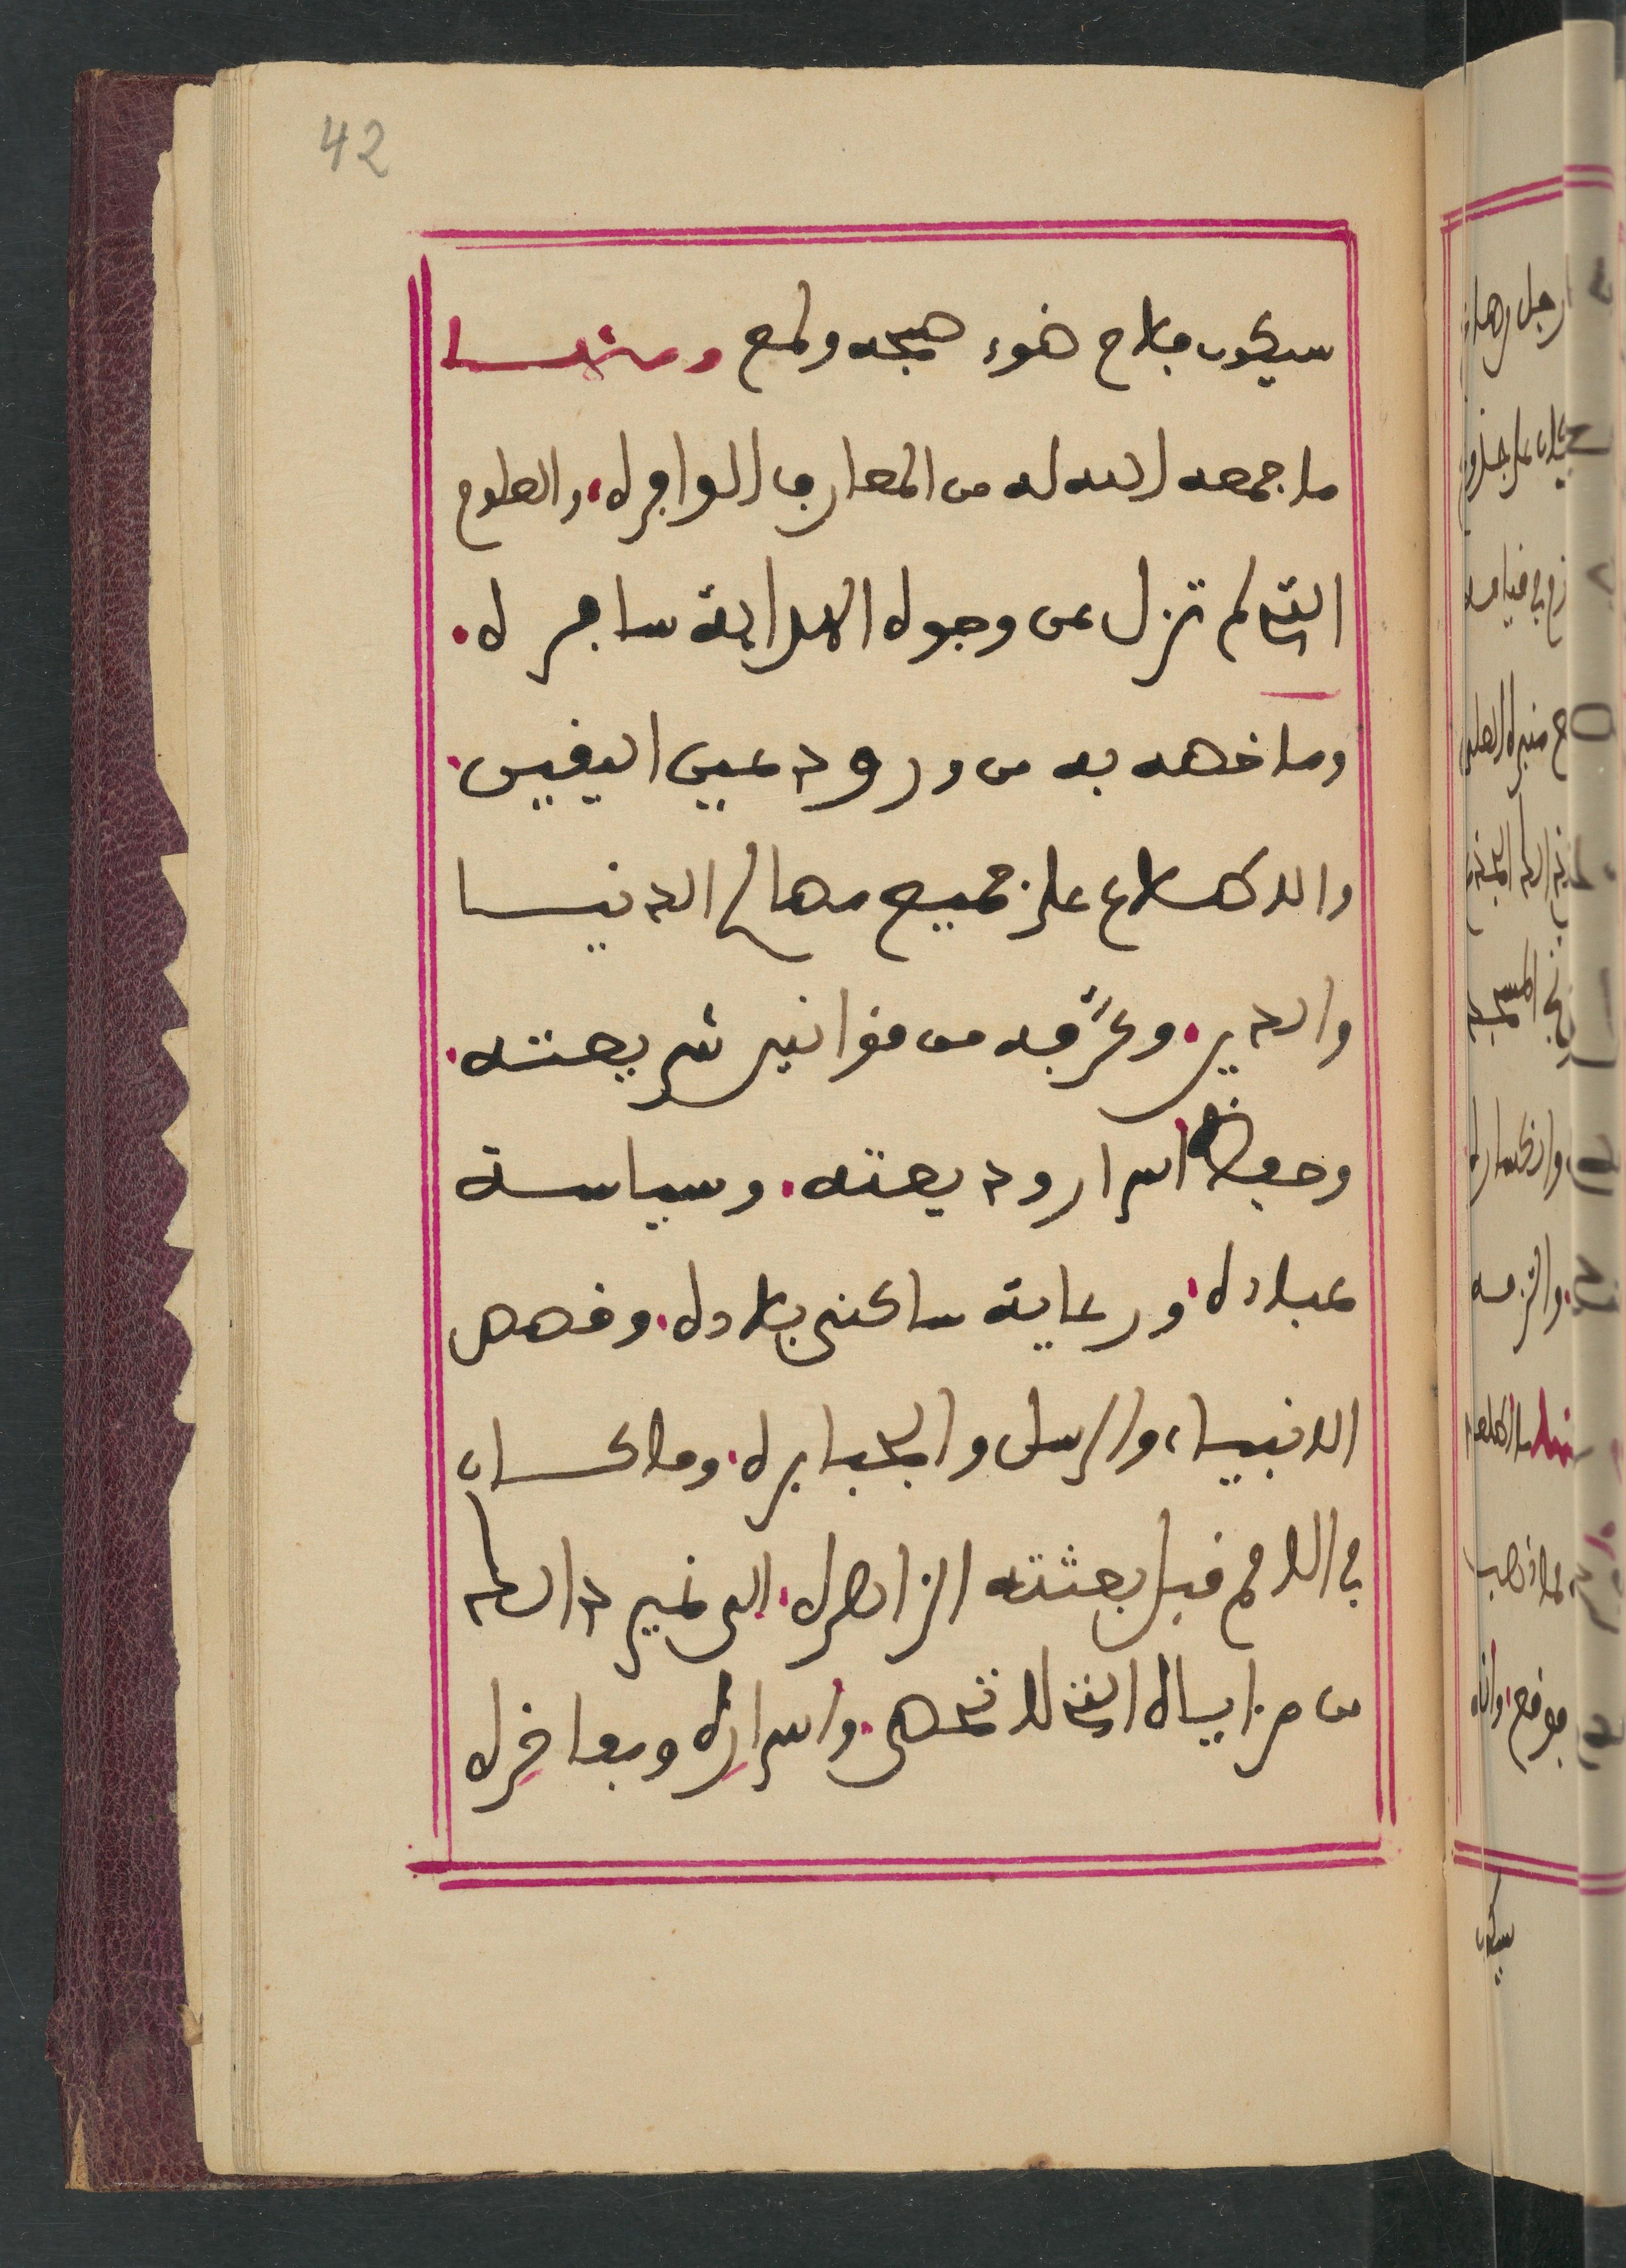 42
سيكون فلاح ضوء صبحه ولمع ومنها
ما جمعه الله له من المعارف الوافره، والعلوم
التي لم تزل عن وجوه الهداية سافره.
وما خصه به من ورود عين اليقين.
والاطلاع على جميع مصالح الدنيا
والدين. وعرّفه من قوانين شريعته.
وحفظ اسرار وديعته. وسياسة
عباده. ورعاية ساكني بلاده. وقصص
الانبياء والرسل والجبابره. وما كان
في الامم قبل بعثته الزاهره. الى غير ذالك
من مزاياه التي لا تحصى. واسراره ومفاخره